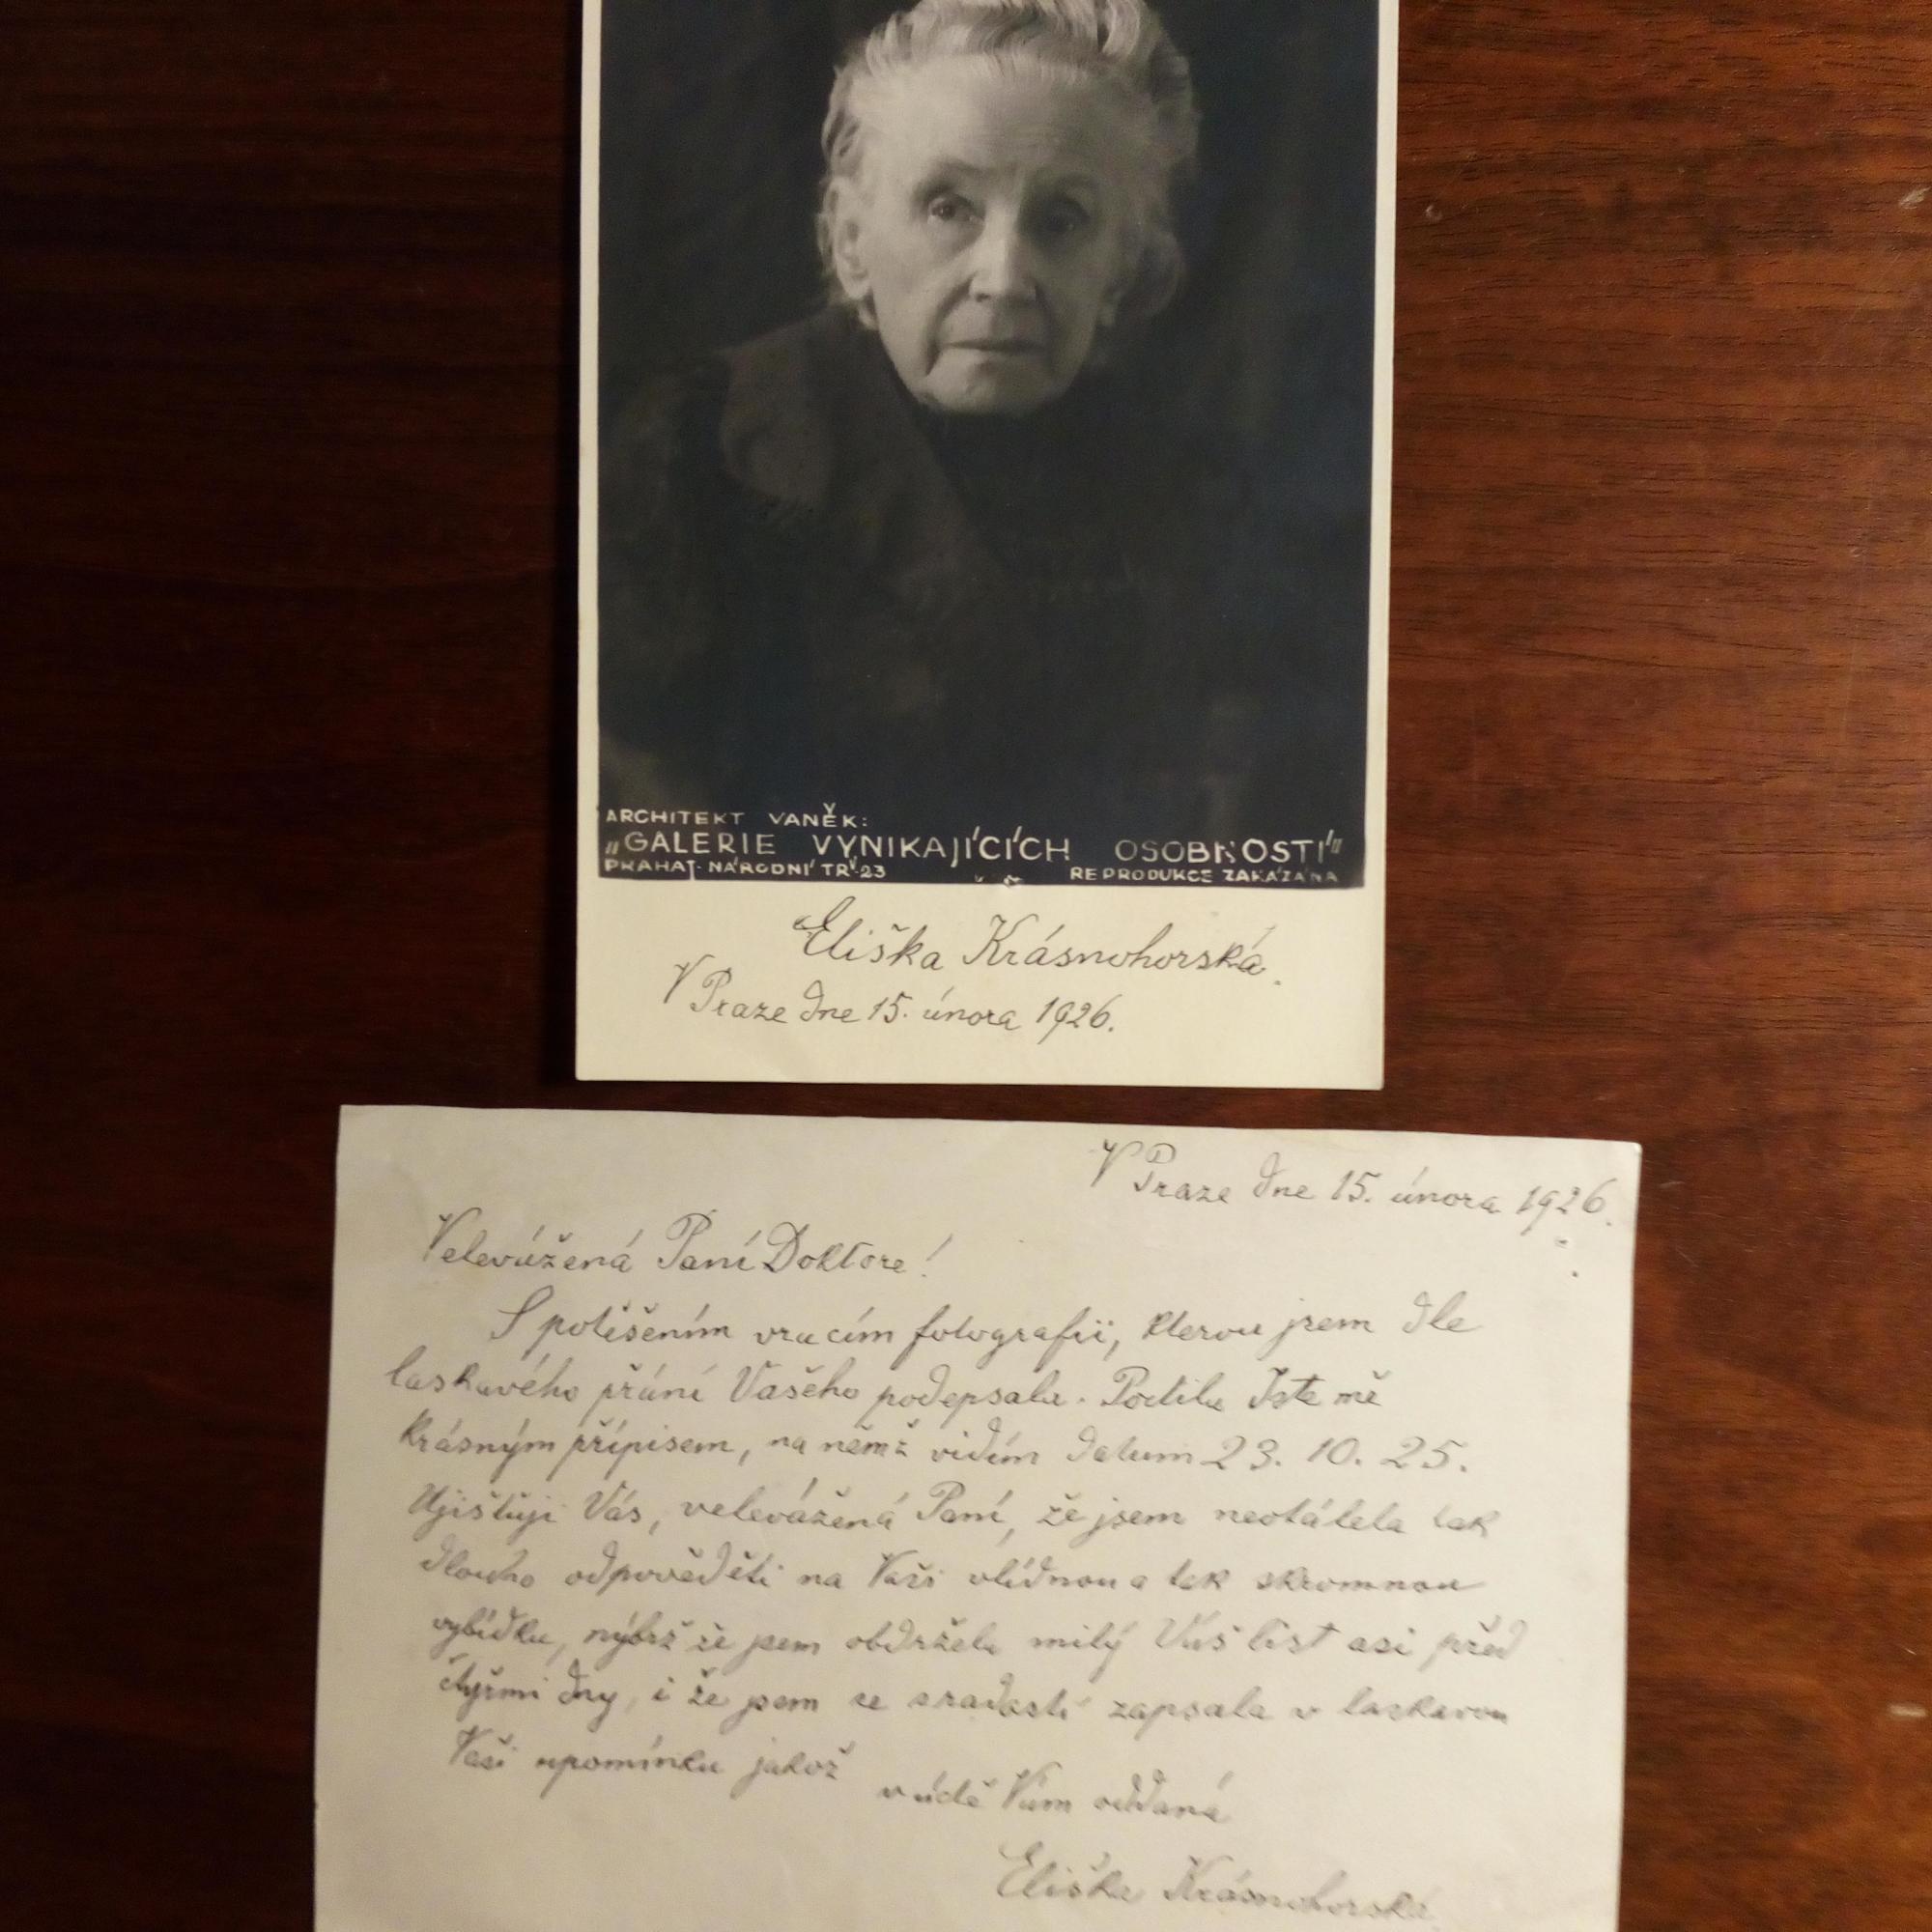 ARCHITEKT VANĚK:
„GALERIE VYNIKAJÍCÍCH OSOBNOSTÍ"
PRAHA I · NÁRODNÍ TŘ. 23 REPRODUKCE ZAKÁZÁNA
Eliška Krásnohorská.
V Praze dne 15. února 1926.
V Praze dne 15. února 1926.
Velevážená Paní Doktore!
S potěšením vracím fotografii, kterou jsem dle
laskavého přání Vašeho podepsala. Poctila Jste mě
krásným přípisem, na němž vidím datum 23. 10. 25.
Ujišťuji Vás, velevážená Paní, že jsem neotálela tak
dlouho odpověděti na Vaši vlídnou a tak skromnou
vybídku, nýbrž že jsem obdržela milý Váš list asi před
čtyřmi dny, i že jsem se s radostí zapsala v laskavou
Vaši upomínku jakož
v úctě Vám oddaná
Eliška Krásnohorská